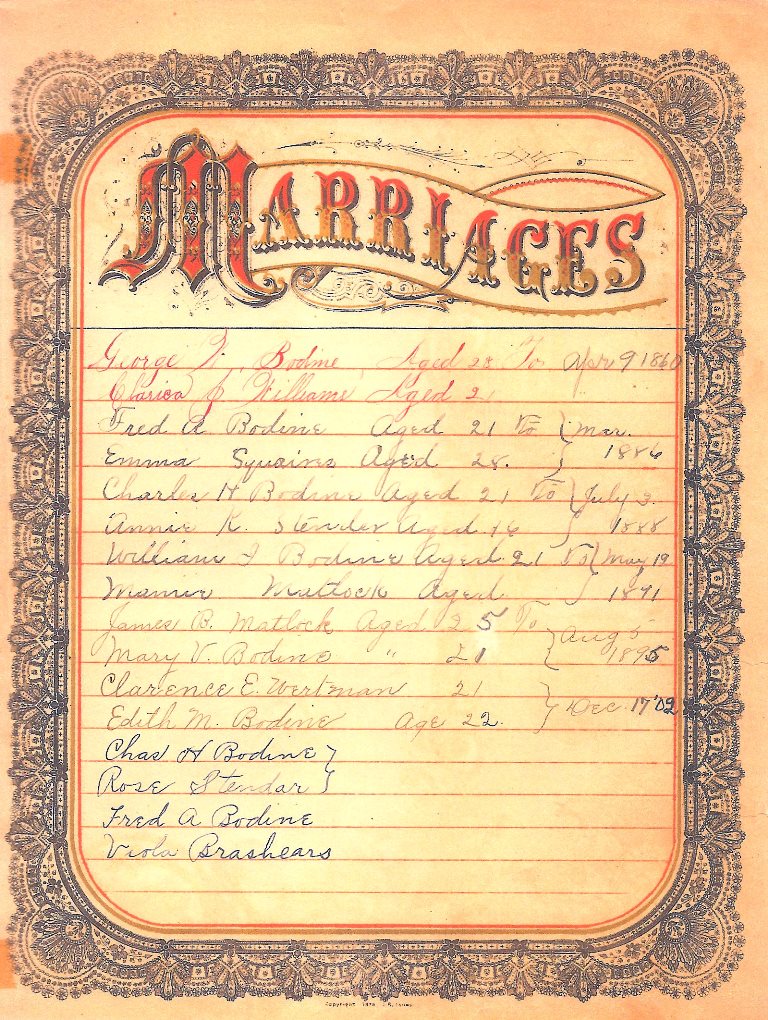 MARRIAGES
George W. Bodine Aged 28 To Apr 9 1860
Clarica J Williams Aged 21
Fred A Bodine Aged 21 To } Mar.
Emma Squaires Aged 28. } 1886
Charles H Bodine Aged 21 To } July 3.
Annie K. Stender Aged 16 } 1888
William I Bodine Aged 21 To { May 19
Mamie Matlock Aged } 1891
James B. Matlock Aged 25 To } Aug 5
Mary V. Bodine " 21 } 1895
Clarence E. Wertman 21 } Dec. 17 '02
Edith M. Bodine Age 22. }
Chas H Bodine }
Rose Stendar }
Fred A Bodine
Viola Brashears
Copyright 1878